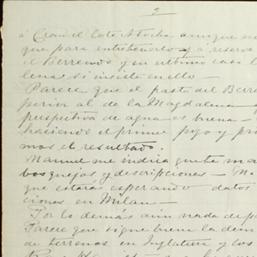 2
á Cravil Coto Atocha aunque
que para entreteneerlo y á reserva
el Berrendo y en ultimo caso l
lena si insiste en ello —
Parece que el pasto del Berre
perior al de la Magdalena
perspectiva de agua es buena —
haciendo el primer pozo y pr
mos el resultado.
Manuel me indica gente
bosquejos y descripciones —
que estarás esperando datos
ciones en Milan —
Por lo demás aún nada de
Parece que sigue bien la dem
de terrenos en Inglaterra y los